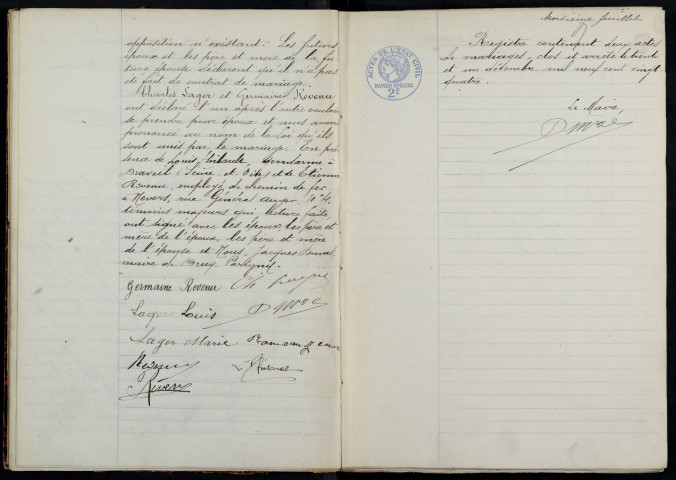 opposition n'existant. Les futurs
époux et les père et mère de la fu-
ture épouse déclarent qu'il n'a pas
été fait de contrat de mariage.
Charles Lager et Germaine Revenu
ont déclaré l'un après l'autre vouloir
se prendre pour époux et nous avons
prononcé au nom de la loi qu'ils
sont unis par le mariage. En pré-
sence de Louis Thibault, gendarme à
Draveil (Seine et Oise) et de Etienne
Revenu, employé de chemin de fer
à Nevers, rue Général Auger N° 4,
témoins majeurs qui, lecture faite,
ont signé avec les époux les père et
mère de l'époux, les père et mère
de l'épouse et Nous, Jacques
maire de
Germaine Revenu Ch
Lager Louis
Lager Marie
Revenu
Revenu
ACTES DE L'ÉTAT CIVIL
PAPIER SPÉCIAL
2F
Registre contenant deux actes
de mariages, clos et arrêté le trente
et un décembre mil neuf cent vingt
quatre.
Le Maire,